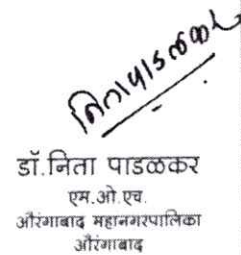 निता पाडळकर
डॉ.निता पाडळकर
एम.ओ.एच.
औरंगाबाद महानगरपालिका
औरंगाबाद